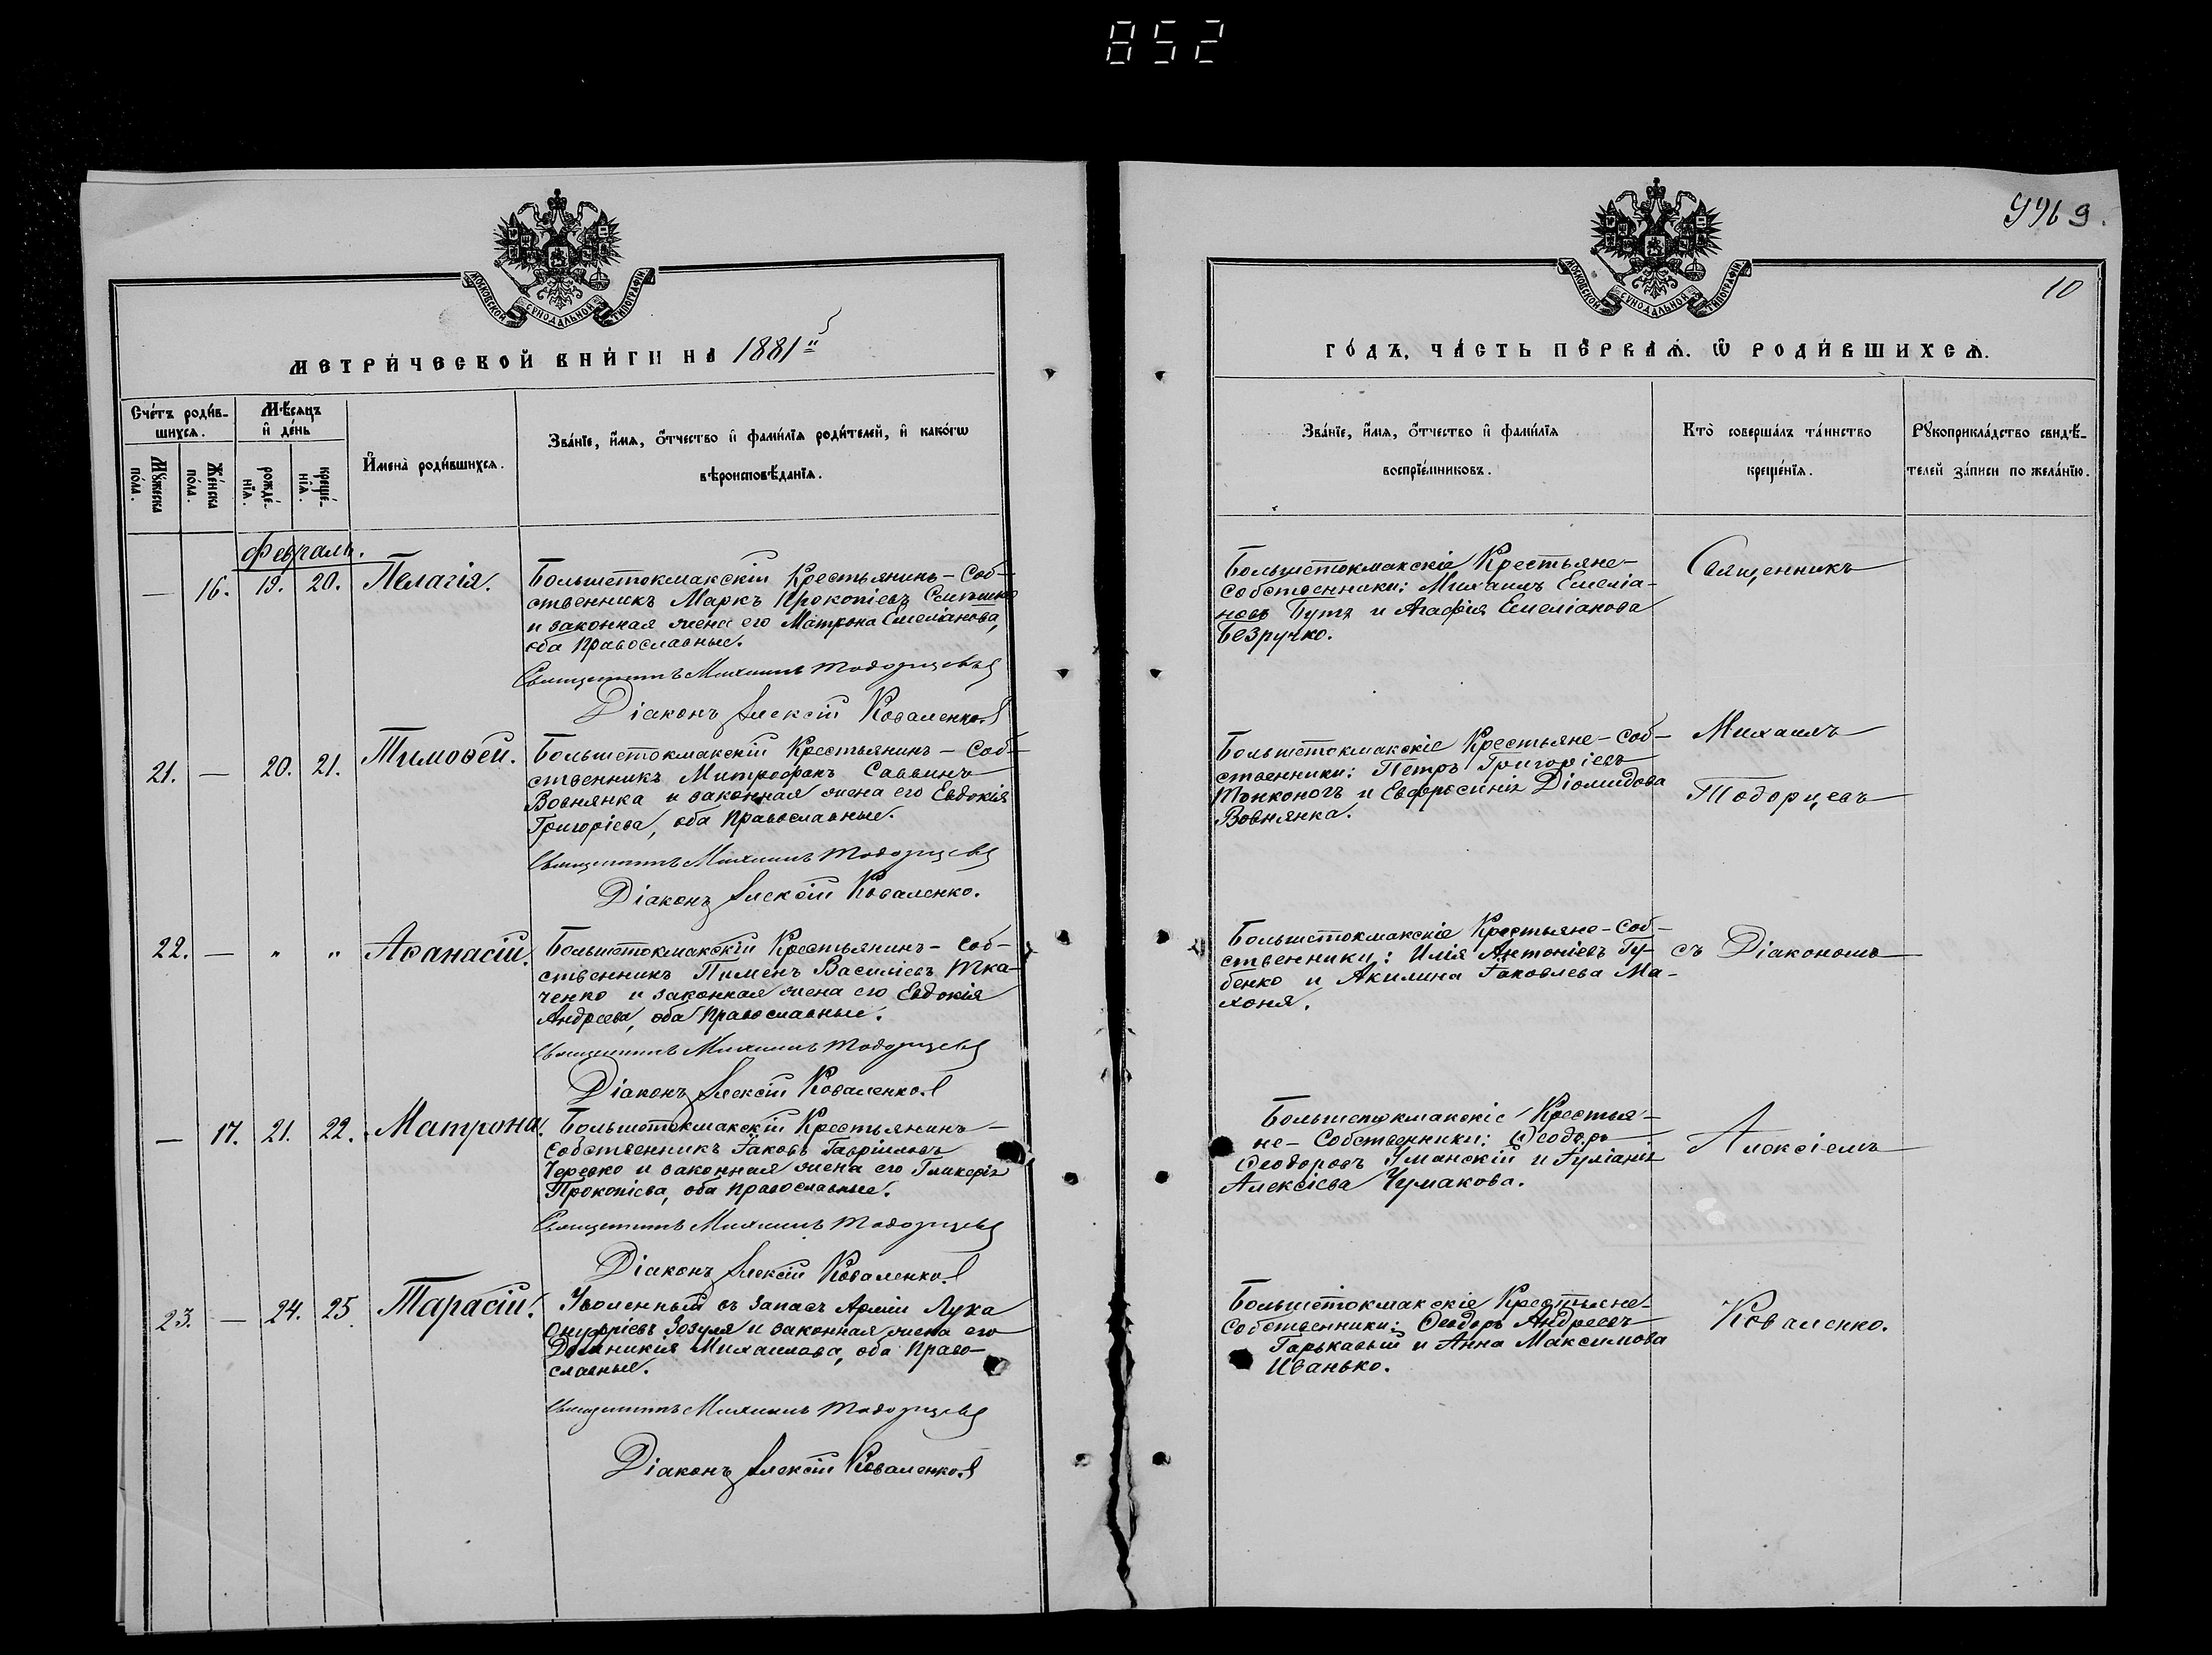 852
МОСКОВСКОЙ СѴНОДАЛЬНОЙ ТИПОГРАФІИ
МЕТРИ́ЧЕСКОЙ КНИ́ГИ НА 1881й
Сче́тъ роди́в-
шихся.
Мѣ́сяцъ
и҆ де́нь
Мꙋ́жеска
по́ла.
Же́нска
по́ла.
рожде́-
нїѧ.
креще́-
нїѧ.
И҆мена̀ роди́вшихсѧ.
Зва́нїе, и҆́мѧ, ѻ҆́тчество и҆ фами́лїѧ роди́телей, и҆ како́гѡ
вѣроисповѣ́данїѧ.
Февраль.
— 16. 19. 20. Пелагія.
Большетокмакскій Крестьянинъ-Соб-
ственникъ Маркъ Прокопіевъ
и законная жена его Матрона Емеліанова,
оба Православные.
Священникъ Михаилъ Тодорцевъ
Діаконъ Алексій Коваленко.
21. — 20. 21. Тимоѳей.
Большетокмакскій Крестьянинъ-Соб-
ственникъ Митрофанъ Саввинъ
Вовнянка и законная жена его Евдокія
Григоріева, оба Православные.
Священникъ Михаилъ Тодорцевъ
Діаконъ Алексій Коваленко.
22. — " " Аѳанасій.
Большетокмакскій Крестьянинъ-Соб-
ственникъ Пименъ Василіевъ Тка-
ченко и законная жена его Евдокія
Андреева, оба Православные.
Священникъ Михаилъ Тодорцевъ
Діаконъ Алексій Коваленко.
— 17. 21. 22. Матрона.
Большетокмакскій Крестьянинъ-
Собственникъ Іаковъ Гавріиловъ
Черевко и законная жена его Гликерія
Прокопіева, оба православные.
Священникъ Михаилъ Тодорцевъ
Діаконъ Алексій Коваленко.
23. — 24. 25. Тарасій.
Уволенный въ запасъ Арміи Лука
Онуфріевъ Зозуля и законная жена его
Домникія Михаилова, оба Право-
славные.
Священникъ Михаилъ Тодорцевъ
Діаконъ Алексій Коваленко.
9969.
10
МОСКОВСКОЙ СѴНОДАЛЬНОЙ ТИПОГРАФІИ
ГО́ДЪ, ЧА́СТЬ ПЕ́РВАѦ, Ѡ҆ РОДИ́ВШИХСѦ.
Зва́нїе, и҆́мѧ, ѻ҆́тчество и҆ фами́лїѧ
воспрїе́мниковъ.
Кто̀ соверша́лъ та́инство
креще́нїѧ.
Рꙋкоприкла́дство свидѣ́-
телей за́писи по жела́нїю.
Большетокмакскіе Крестьяне-
Собственники: Михаилъ Емеліа-
новъ Бутъ и Агафія Емеліанова
Безручко.
Большетокмакскіе Крестьяне-Соб-
ственники: Петръ Григоріевъ
Тонконогъ и Евфросинія Діомидова
Вовнянка.
Большетокмакскіе Крестьяне-Соб-
ственники: Илія Антоніевъ Гу-
бенко и Акилина Іаковлева Ма-
хоня.
Большетокмакскіе Крестья-
не-Собственники: Ѳеодоръ
Ѳеодоровъ Уманскій и Іуліанія
Алексіева Чумакова.
Большетокмакскіе Крестьяне-
Собственники: Ѳеодоръ Андреевъ
Гарькавый и Анна Максимова
Иванько.
Священникъ
Михаилъ
Тодорцевъ
съ Діакономъ
Алексіемъ
Коваленко.